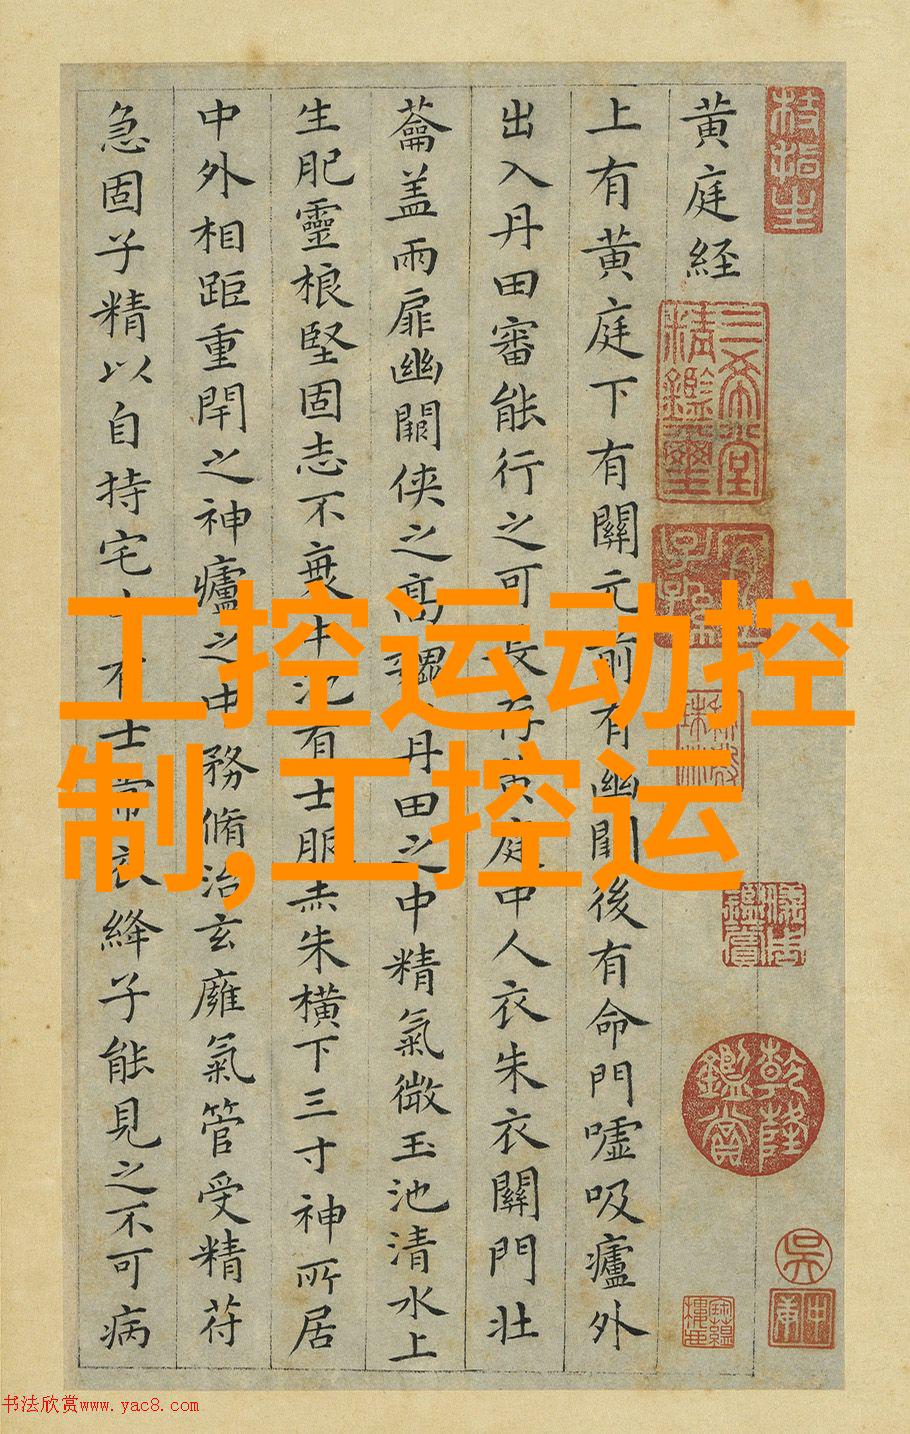 黄庭経
上有黄庭下有關元前有幽闕後有命門嘘吸廬外
出入丹田審能行之可長存黄庭中人衣朱衣關門壮
蘥盖兩扉幽闕侠之髙巍丹田之中精氣微玉池清水上
生肥靈根堅固志不衰中池有士服赤朱横下三寸神所居
中外相距重閇之神廬之中務脩治玄廱氣管受精苻
急固子精以自持宅中有士常衣絳子能見之不可病
三希堂精鑑璽
宜子孫
乾隆鑑賞
工控运动控
制,工控运
书法欣赏www.yac8.com